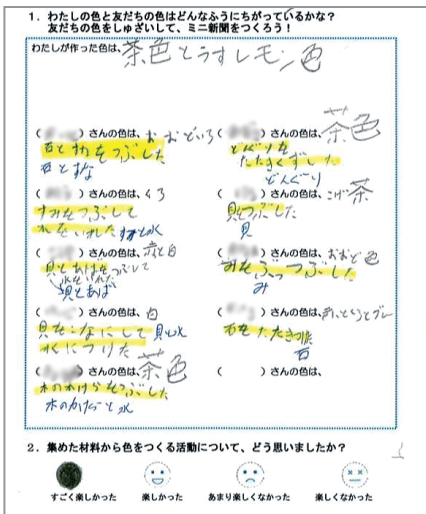 1. わたしの色と友だちの色はどんなふうにちがっているかな？
友だちの色をしゅざいして、ミニ新聞をつくろう！
わたしが作った色は、茶色とうすレモン色
( ) さんの色は、おおどいろ
石とすなをつぶした
石とすな
( ) さんの色は、くろ
すみをつぶして
水をいれた すみと水
( ) さんの色は、赤と白
貝と
をつぶして
水をいれた
貝と
( ) さんの色は、白
貝をこなにして 貝と水
水に
( ) さんの色は、茶色
木のかけらをつぶした
木のかけらと水
( ) さんの色は、茶色
どんぐりを
たたきくずした
どんぐり
( ) さんの色は、こげ茶
つぶした
( ) さんの色は、おおど色
みをぶっつぶした
み
( ) さんの色は、
石をたたき
石
( ) さんの色は、
2. 集めた材料から色をつくる活動について、どう思いましたか？
すごく楽しかった 楽しかった あまり楽しくなかった 楽しくなかった